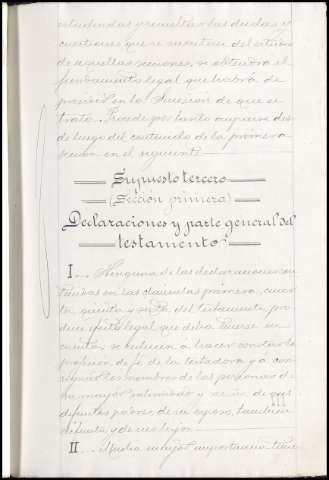 estudiadas y resueltas las dudas y
cuestiones que se susciten del estudio
de aquellas secciones, se obtendrá el
pensamiento legal que habrá de
presidir en la sucesión de que se
trata. Procede por tanto ocuparse des
de luego del contenido de la primera
sección en el siguiente
Supuesto tercero
(Sección primera)
Declaraciones y parte general del
testamento
I... Ninguna de las declaraciones con
tenidas en las cláusulas primera, cuar
ta, quinta y sexta del testamento, pro
duce efecto legal que deba tenerse en
cuenta; se reducen á hacer constar la
profesión de fe de la testadora y á con
signar los nombres de las personas de
su mayor intimidad y
difuntos padres, de su esposo, también
difunto, y de sus hijos
III
II... Mucha mayor importancia tiene